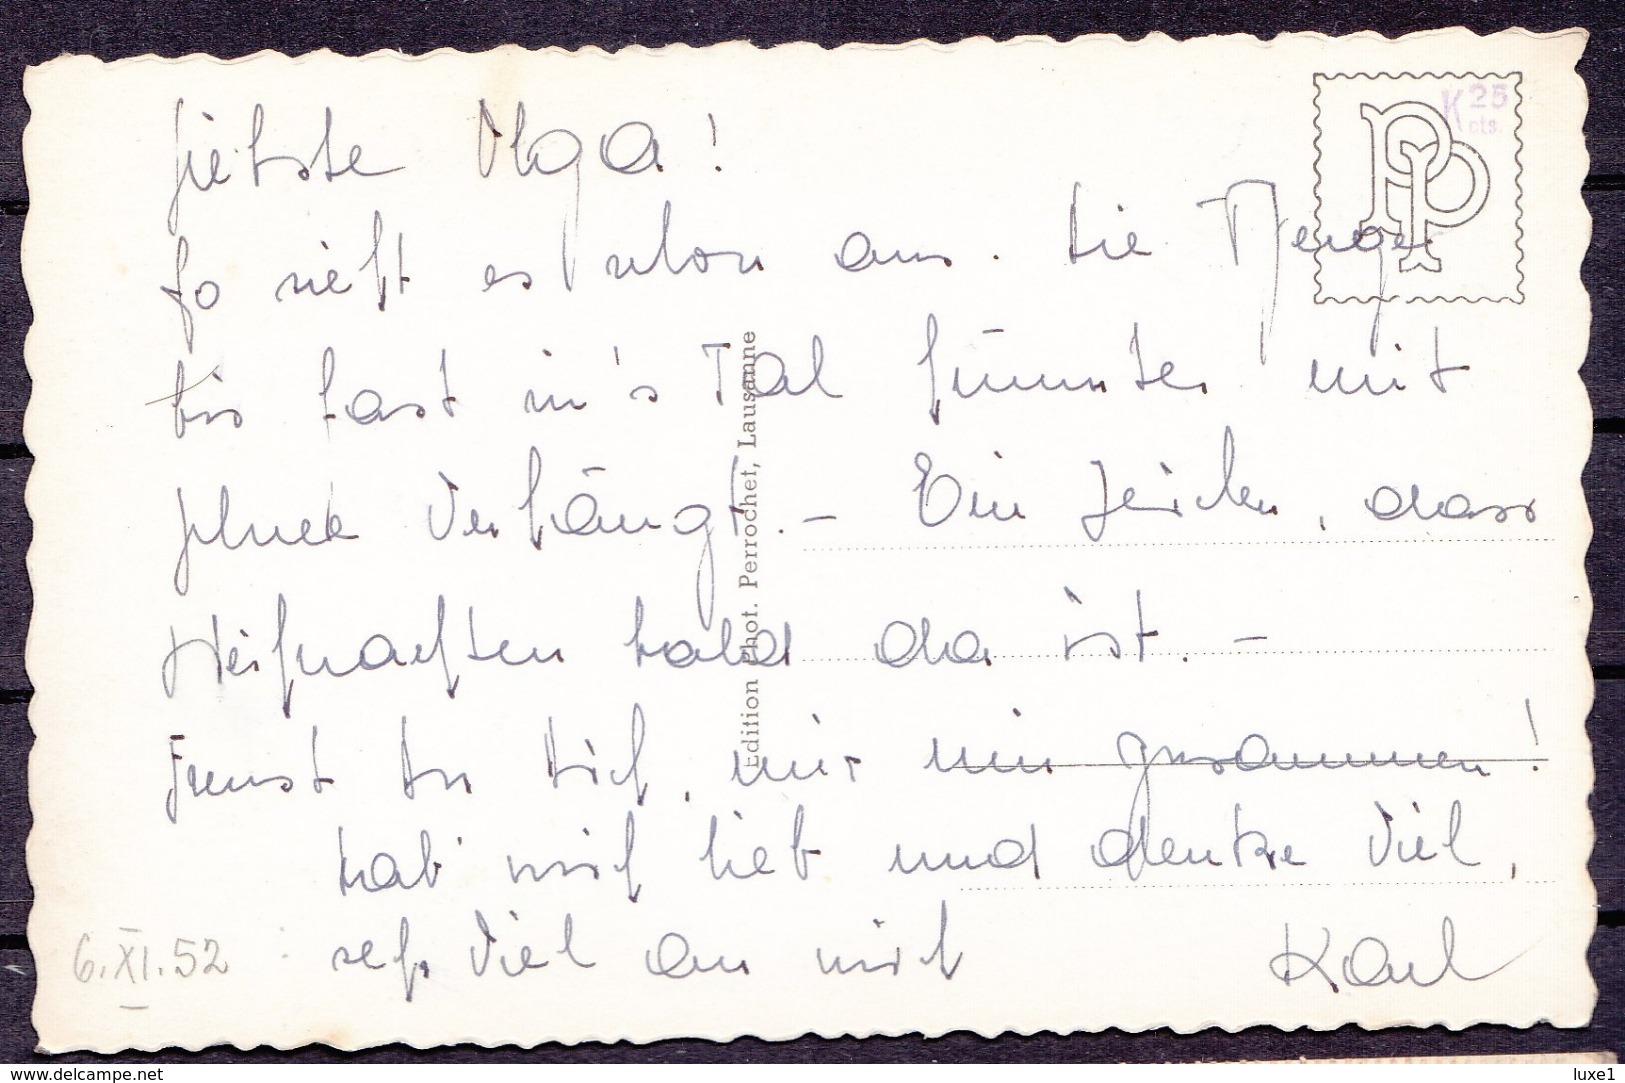 Liebste Olga!
So sieht es schon aus. Die Berge
bis fast in's Tal hinunter mit
Schnee verhängt. – Ein Zeichen, dass
Weihnachten bald da ist. –
Freust Du Dich, mir nun zusammen!
Hab' mich lieb und denke viel,
sehr viel an mich Karl
6.XI.52
Edition Phot. Perrochet, Lausanne
K 25 cts.
PP
www.delcampe.net
luxe1